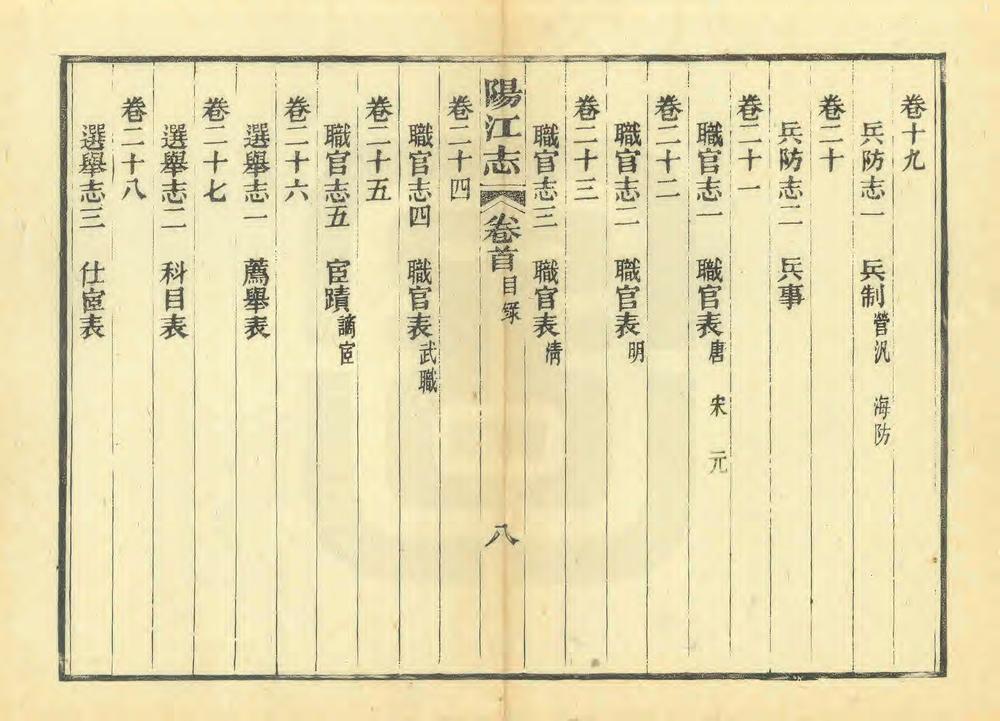 卷十九
兵防志一　兵制營汛　海防
卷二十
兵防志二　兵事
卷二十一
職官志一　職官表唐　宋　元
卷二十二
職官志二　職官表明
卷二十三
職官志三　職官表清
陽江志　卷首目錄　八
卷二十四
職官志四　職官表武職
卷二十五
職官志五　宦蹟謫宦
卷二十六
選舉志一　薦舉表
卷二十七
選舉志二　科目表
卷二十八
選舉志三　仕宦表